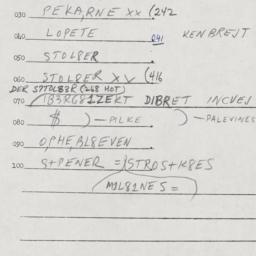 030 PEKA,RNE XX (242
040 LOPETE 241 KENBREJT
050 STOL8ER
060 STOL8ER XV (416
DER SPTOLB3R (268 HOT)
070 1B3RG81ZERT DIBRET INCVEJ
080 $ ) — PILKE ) — PALEVINES
090 O,PHE,BLSEVEN
100 S+PENER = )STROS+K8ES
M1L81NES =